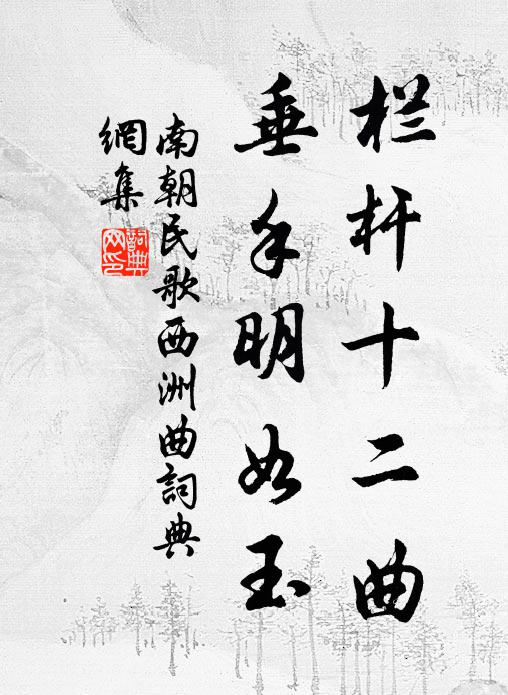 栏杆十二曲
垂手明如玉
南朝民歌西洲曲詞典
網集
詞典
网印